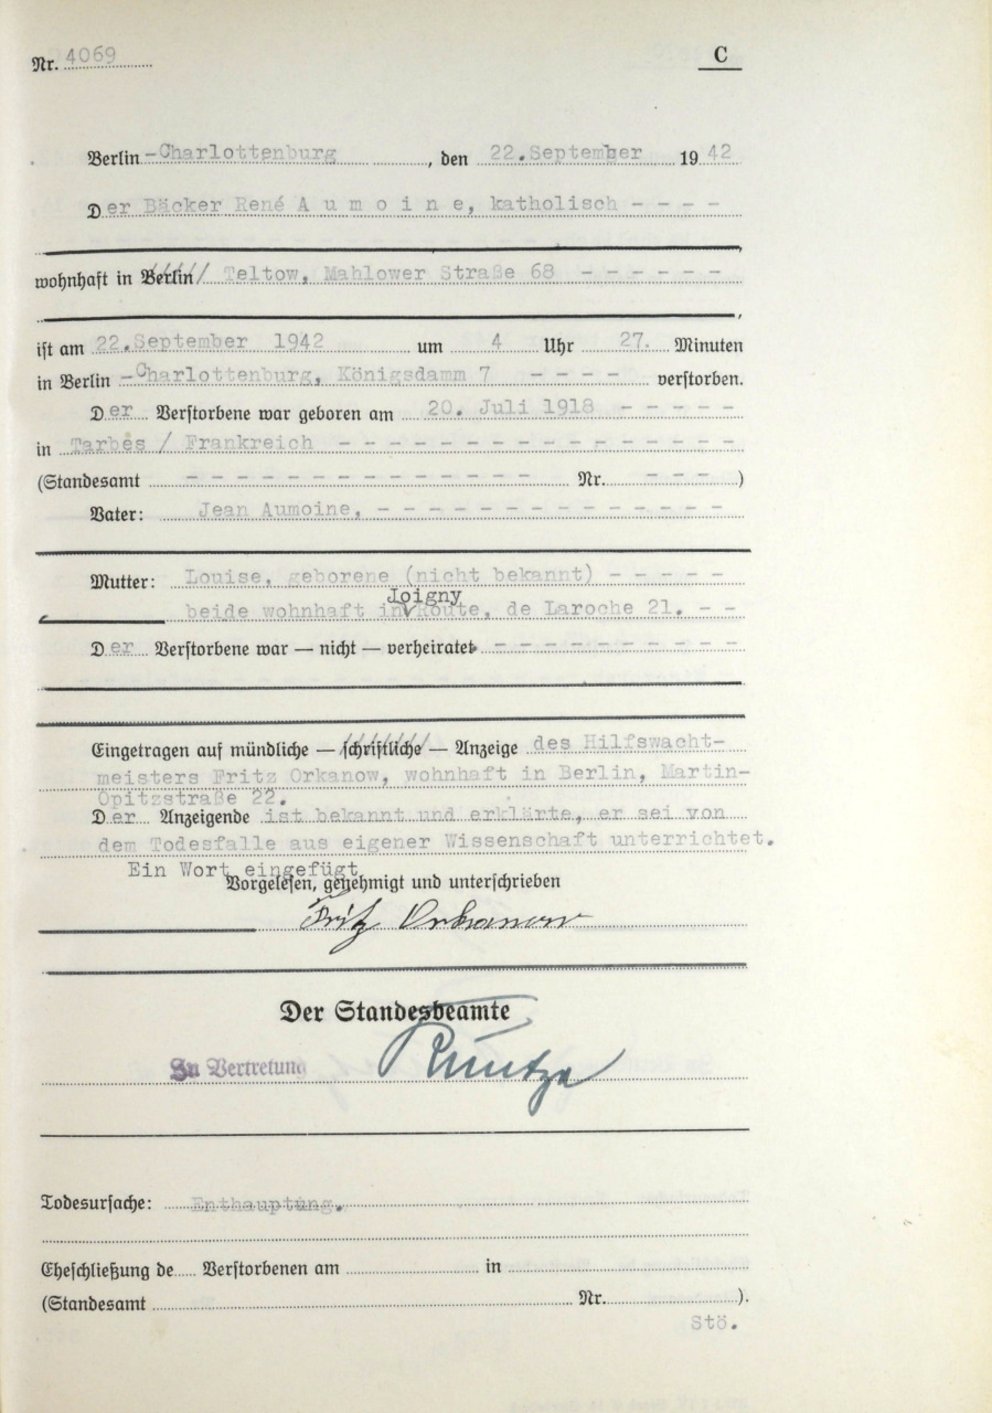 Nr. 4069
C
Berlin-Charlottenburg, den 22. September 1942
Der Bäcker René A u m o i n e, katholisch - - - -
wohnhaft in Berlin Teltow, Mahlower Straße 68 - - - - - -
ist am 22. September 1942 um 4 Uhr 27. Minuten
in Berlin-Charlottenburg, Königsdamm 7 - - - - verstorben.
Der Verstorbene war geboren am 20. Juli 1918 - - - - -
in Tarbes / Frankreich - - - - - - - - - - - - - - - -
(Standesamt - - - - - - - - - - - - - - Nr. - - - )
Vater: Jean Aumoine, - - - - - - - - - - - - - -
Mutter: Louise, geborene (nicht bekannt) - - - - -
Joigny
beide wohnhaft in Route, de Laroche 21. - -
Der Verstorbene war — nicht — verheiratet - - - - - - - - - -
Eingetragen auf mündliche — schriftliche — Anzeige des Hilfswacht-
meisters Fritz Orkanow, wohnhaft in Berlin, Martin-
Opitzstraße 22.
Der Anzeigende ist bekannt und erklärte, er sei von
dem Todesfalle aus eigener Wissenschaft unterrichtet.
Ein Wort eingefügt
Vorgelesen, genehmigt und unterschrieben
Fritz Orkanow
Der Standesbeamte
In Vertretung Runtze
Todesursache: Enthauptung.
Eheschließung de Verstorbenen am in
(Standesamt Nr. ).
Stö.